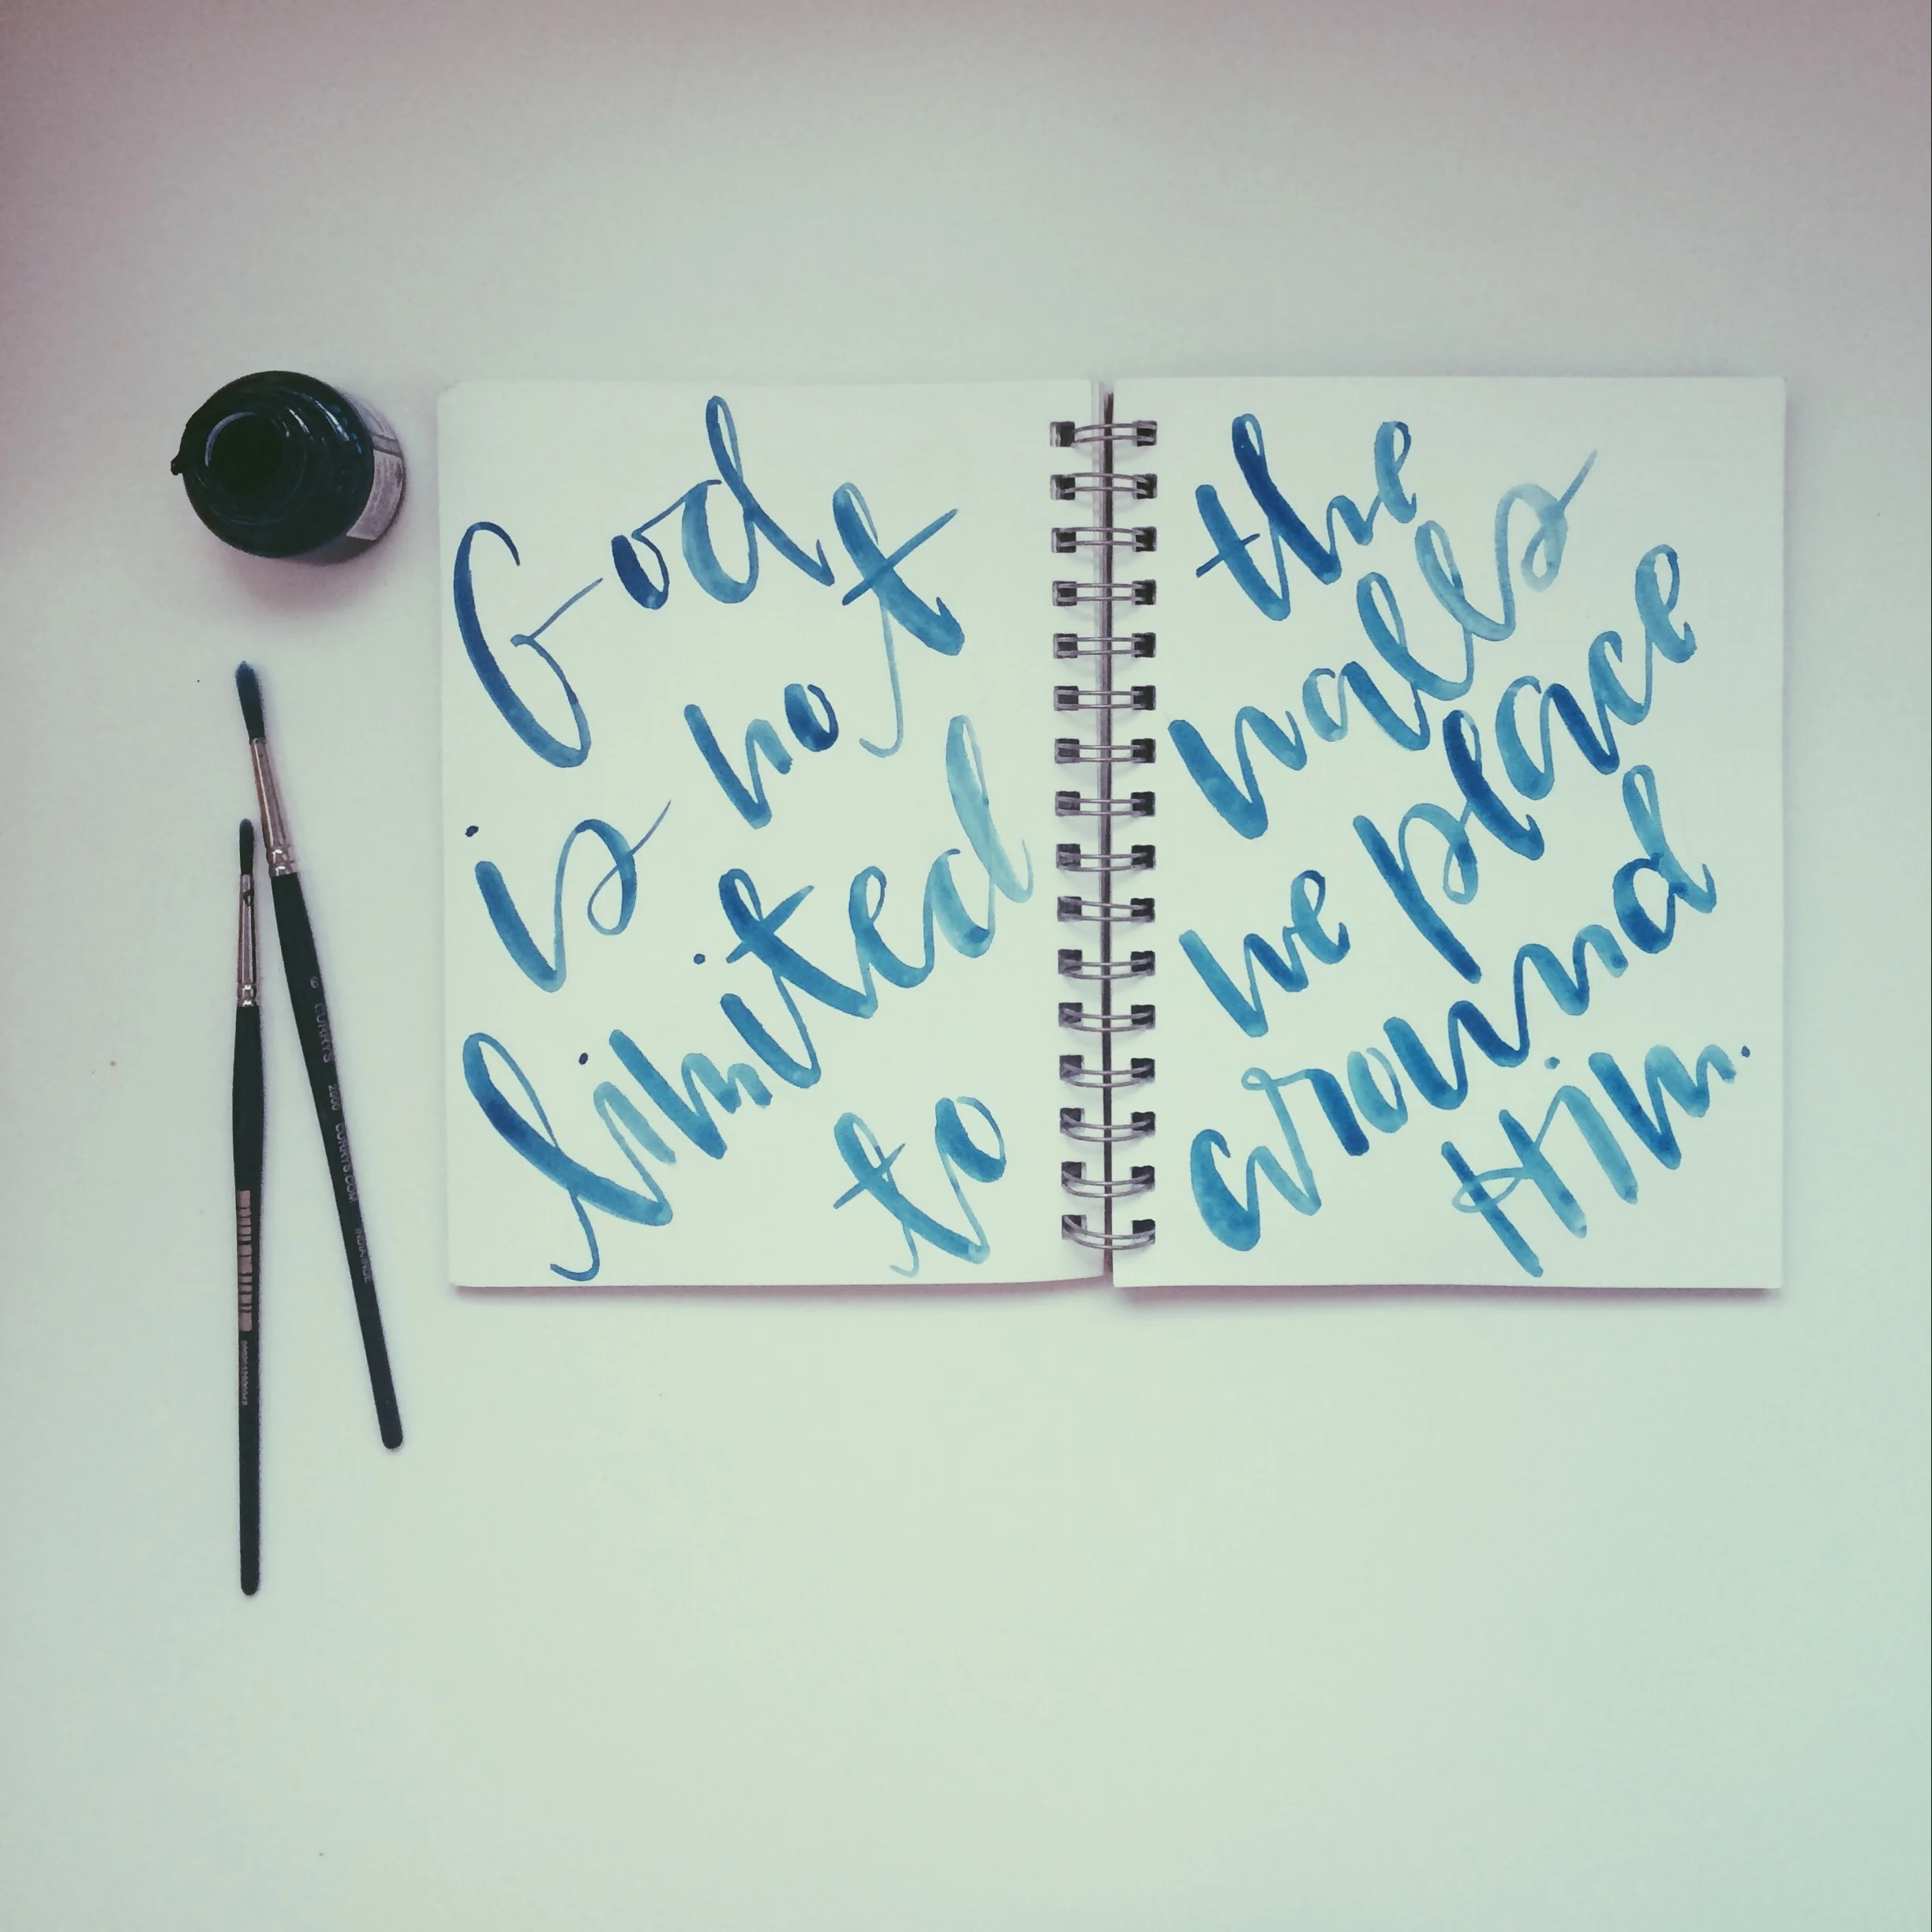 God
is not
limited
to
the
walls
we place
around
Him.
6 CURRY'S 2200 CURRYS.COM